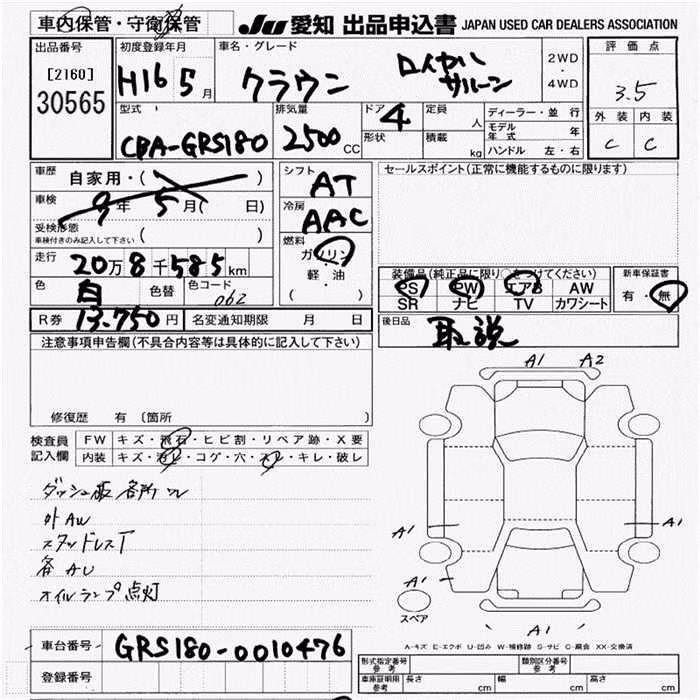 車内保管・守衛保管
JU 愛知 出品申込書 JAPAN USED CAR DEALERS ASSOCIATION
出品番号
[2160]
30565
初度登録年月
H16 5 月
車名・グレード
クラウン
ロイヤル
サルーン
2WD
・
4WD
評価点
3.5
外装 内装
C C
型式
CBA-GRS180
排気量
2500 CC
ドア 4
形状
定員 人
積載 kg
ディーラー・並行
モデル年式 年
ハンドル 左・右
車歴 自家用・( )
車検 9年 5月( 日)
受検形態
車検付きのみ記入して下さい ( )
走行 20万8千585km
色 白 色替 色コード 062
R券 13.750円 名変通知期限 月 日
シフト
AT
冷房
AAC
燃料
ガソリン
・
軽・油
( )
セールスポイント(正常に機能するものに限ります)
装備品(純正品に限り○をつけてください)
PS PW エアB AW
SR ナビ TV カワシート
新車保証書
有・無
後日品
取説
注意事項申告欄(不具合内容等は具体的に記入して下さい)
修復歴 有 〔箇所 〕
検査員
記入欄
FW キズ・飛石・ヒビ割・リペア跡・X要
内装 キズ・汚レ・コゲ・穴・スレ・キレ・破レ
ダッシュ板各所ワレ
外AW
スタッドレスT
各AU
オイルランプ点灯
A1 A2
A1 A1
A1
A1
スペア
A-キズ E-エクボ U-凹み W-補修跡 S-サビ C-腐食 XX-交換済
車台番号 GRS180-0010476
登録番号
型式指定番号
参考
類別区分番号
参考
車庫証明用
参考
長さ cm 幅 cm 高さ cm